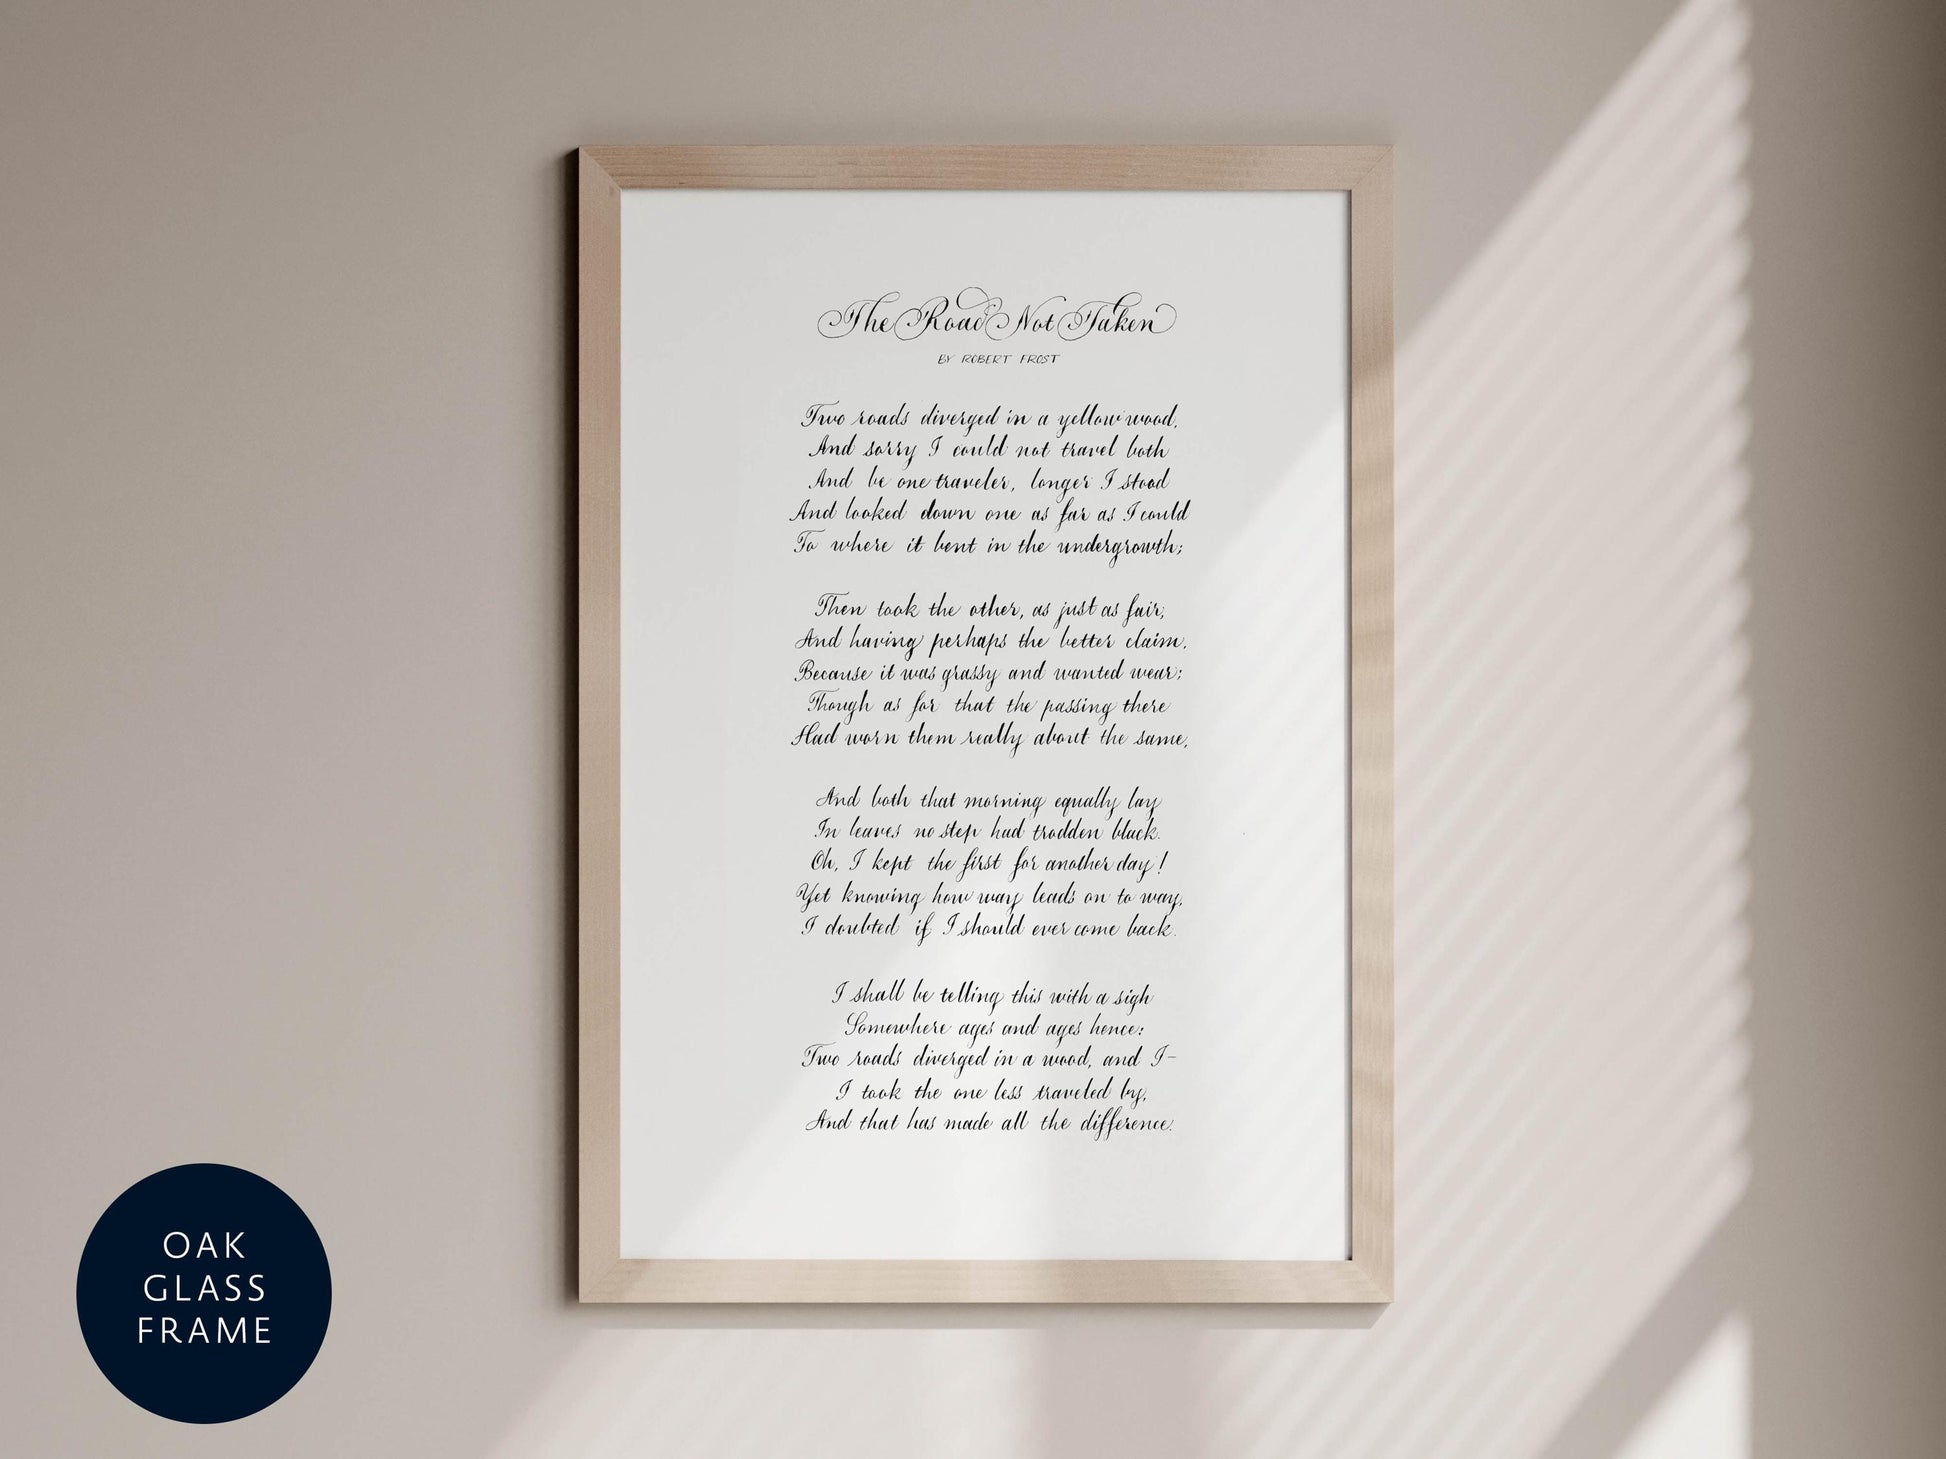 The Road Not Taken
BY ROBERT FROST
Two roads diverged in a yellow wood,
And sorry I could not travel both
And be one traveler, longer I stood
And looked down one as far as I could
To where it bent in the undergrowth;
Then took the other, as just as fair,
And having perhaps the better claim,
Because it was grassy and wanted wear;
Though as for that the passing there
Had worn them really about the same,
And both that morning equally lay
In leaves no step had trodden black.
Oh, I kept the first for another day!
Yet knowing how way leads on to way,
I doubted if I should ever come back.
I shall be telling this with a sigh
Somewhere ages and ages hence:
Two roads diverged in a wood, and I–
I took the one less traveled by,
And that has made all the difference.
OAK
GLASS
FRAME